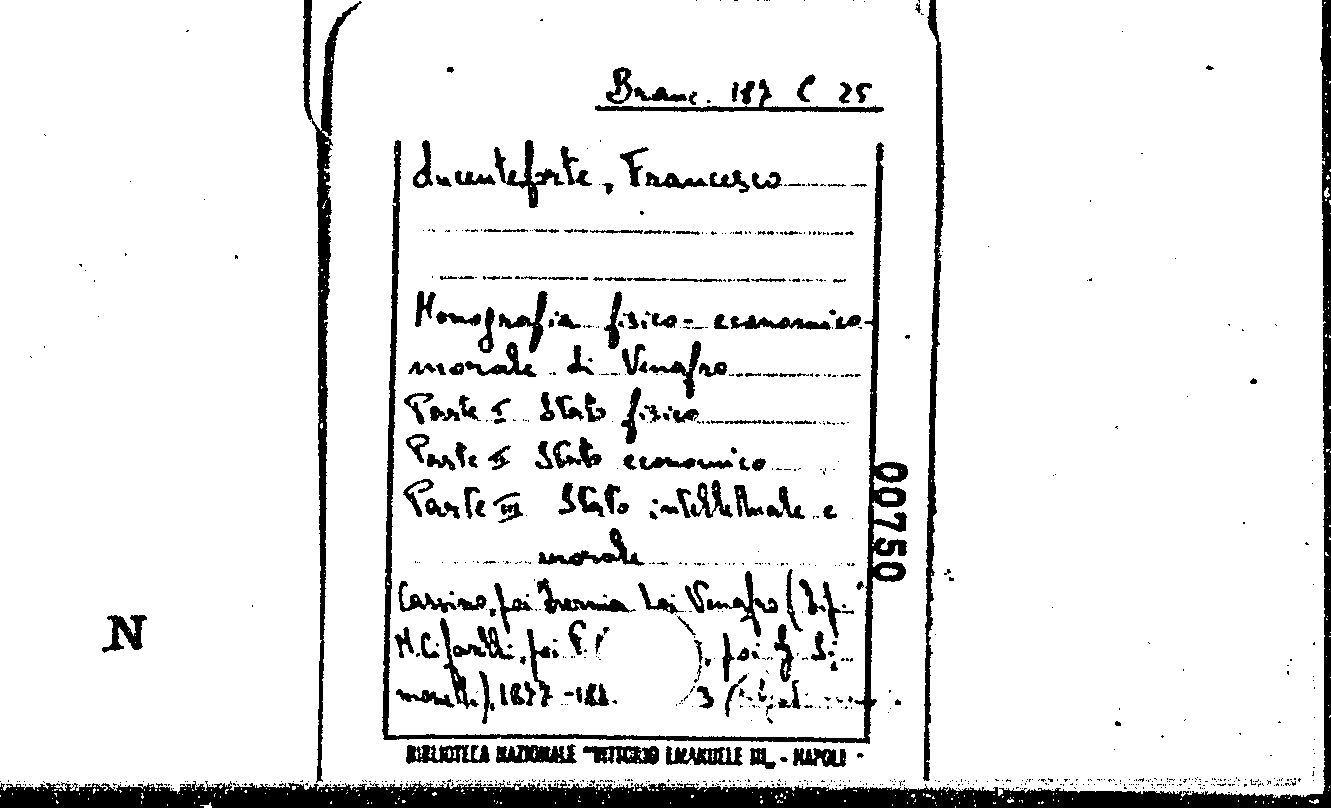 Branc. 187 C 25
Lucenteforte, Francesco
Monografia fisico-economico-
morale di Venafro
Parte I Stato fisico
Parte II Stato economico
Parte III Stato intellettuale e
morale
Cassino, poi Isernia poi Venafro (Tip.
M. Cifarelli, poi , poi G. Si-
monelli), 1877-188 3
00750
N
BIBLIOTECA NAZIONALE "VITTORIO EMANUELE III" - NAPOLI